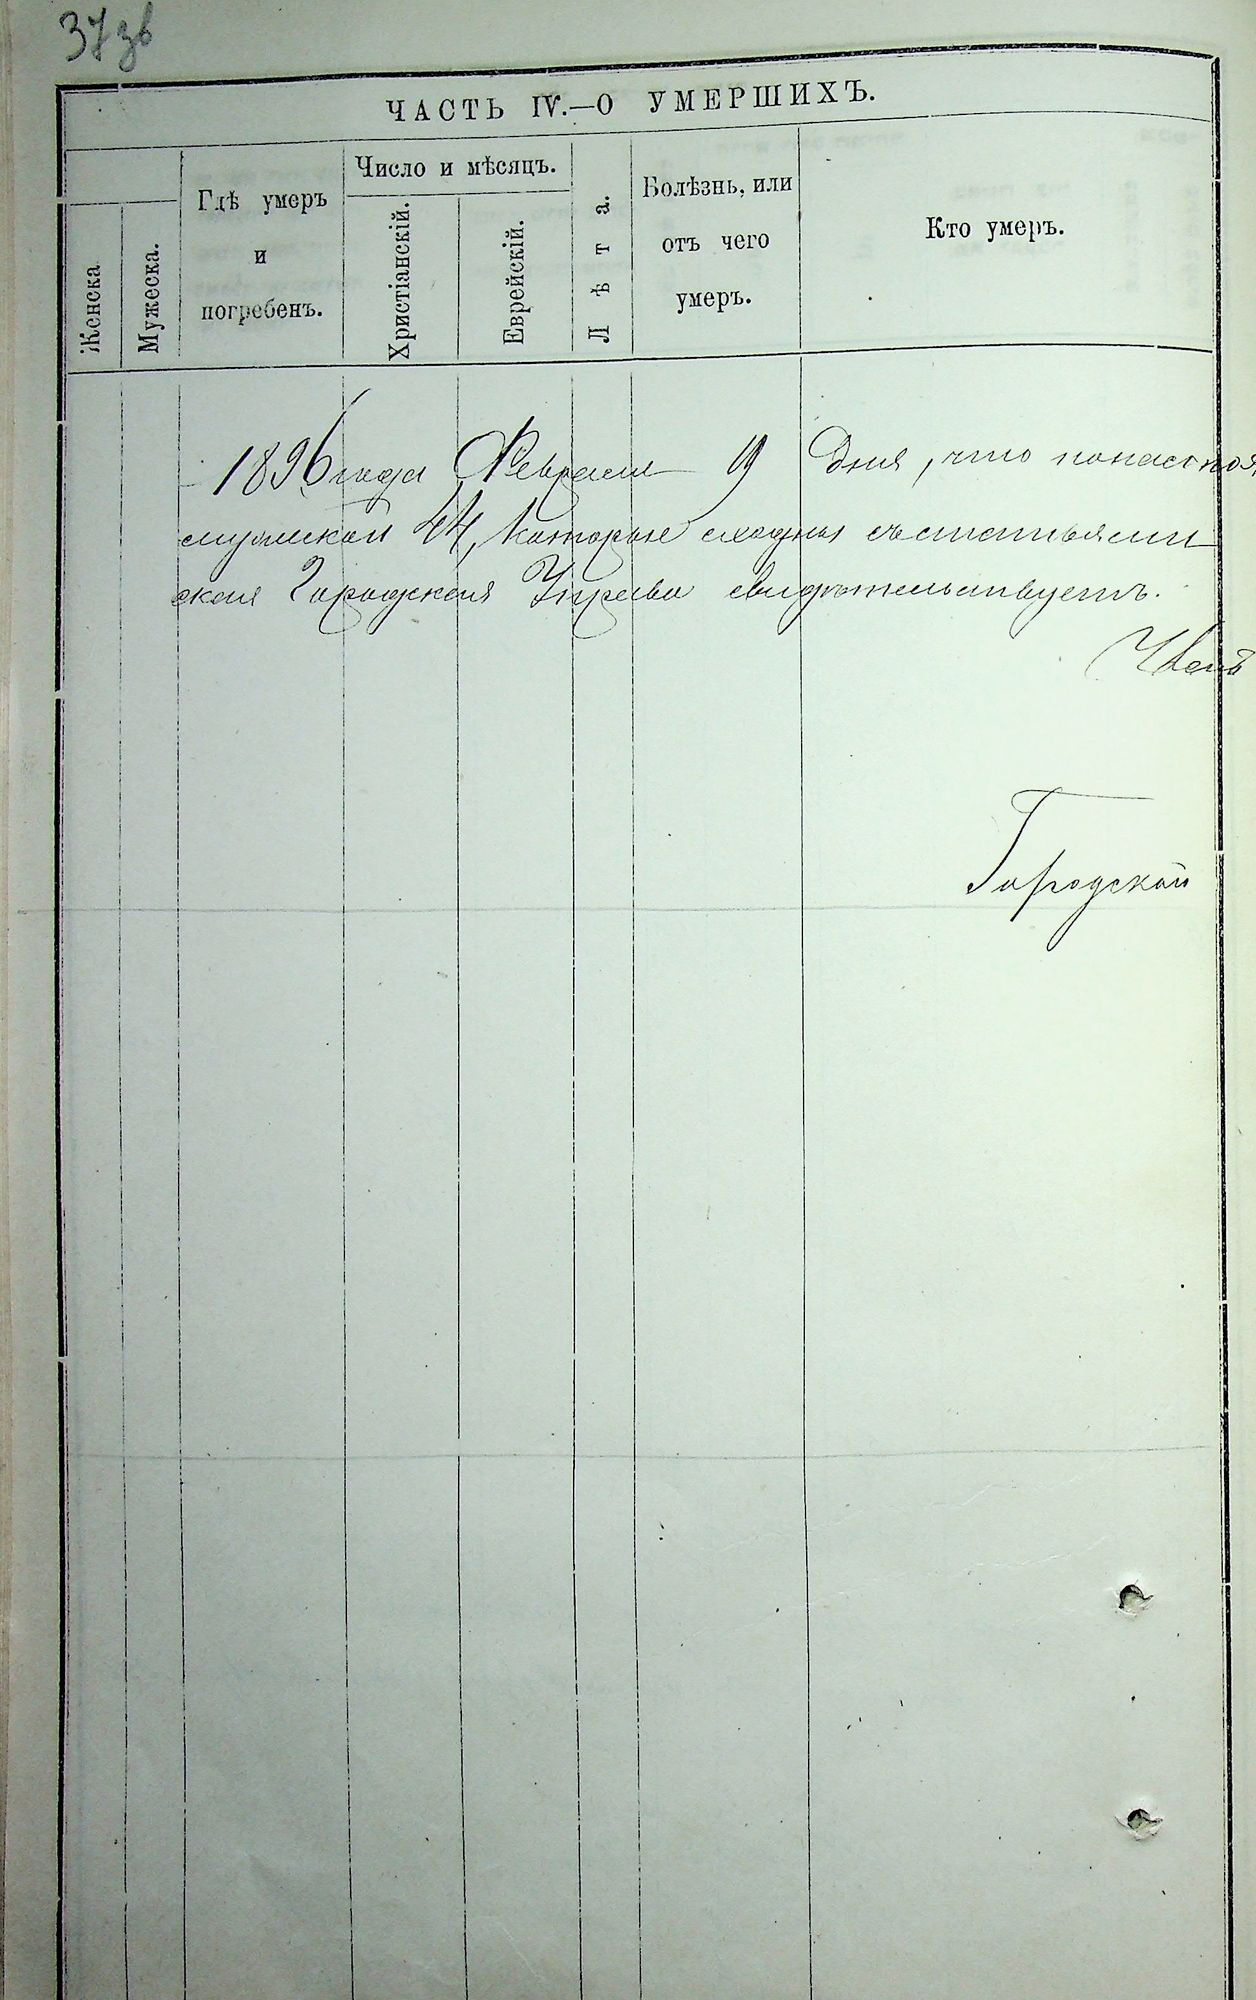 37 зв
ЧАСТЬ IV.—О УМЕРШИХЪ.
Женска
Мужеска.
Гдѣ умеръ
и
погребенъ.
Число и мѣсяцъ.
Христіанскій.
Еврейскій.
Лѣта.
Болѣзнь, или
отъ чего
умеръ.
Кто умеръ.
1896 года Февраля 19 дня, что по настоя
мужской 44, которые сходны съ статьями
ская Городская Управа свидѣтельствуетъ.
Членъ
Городской